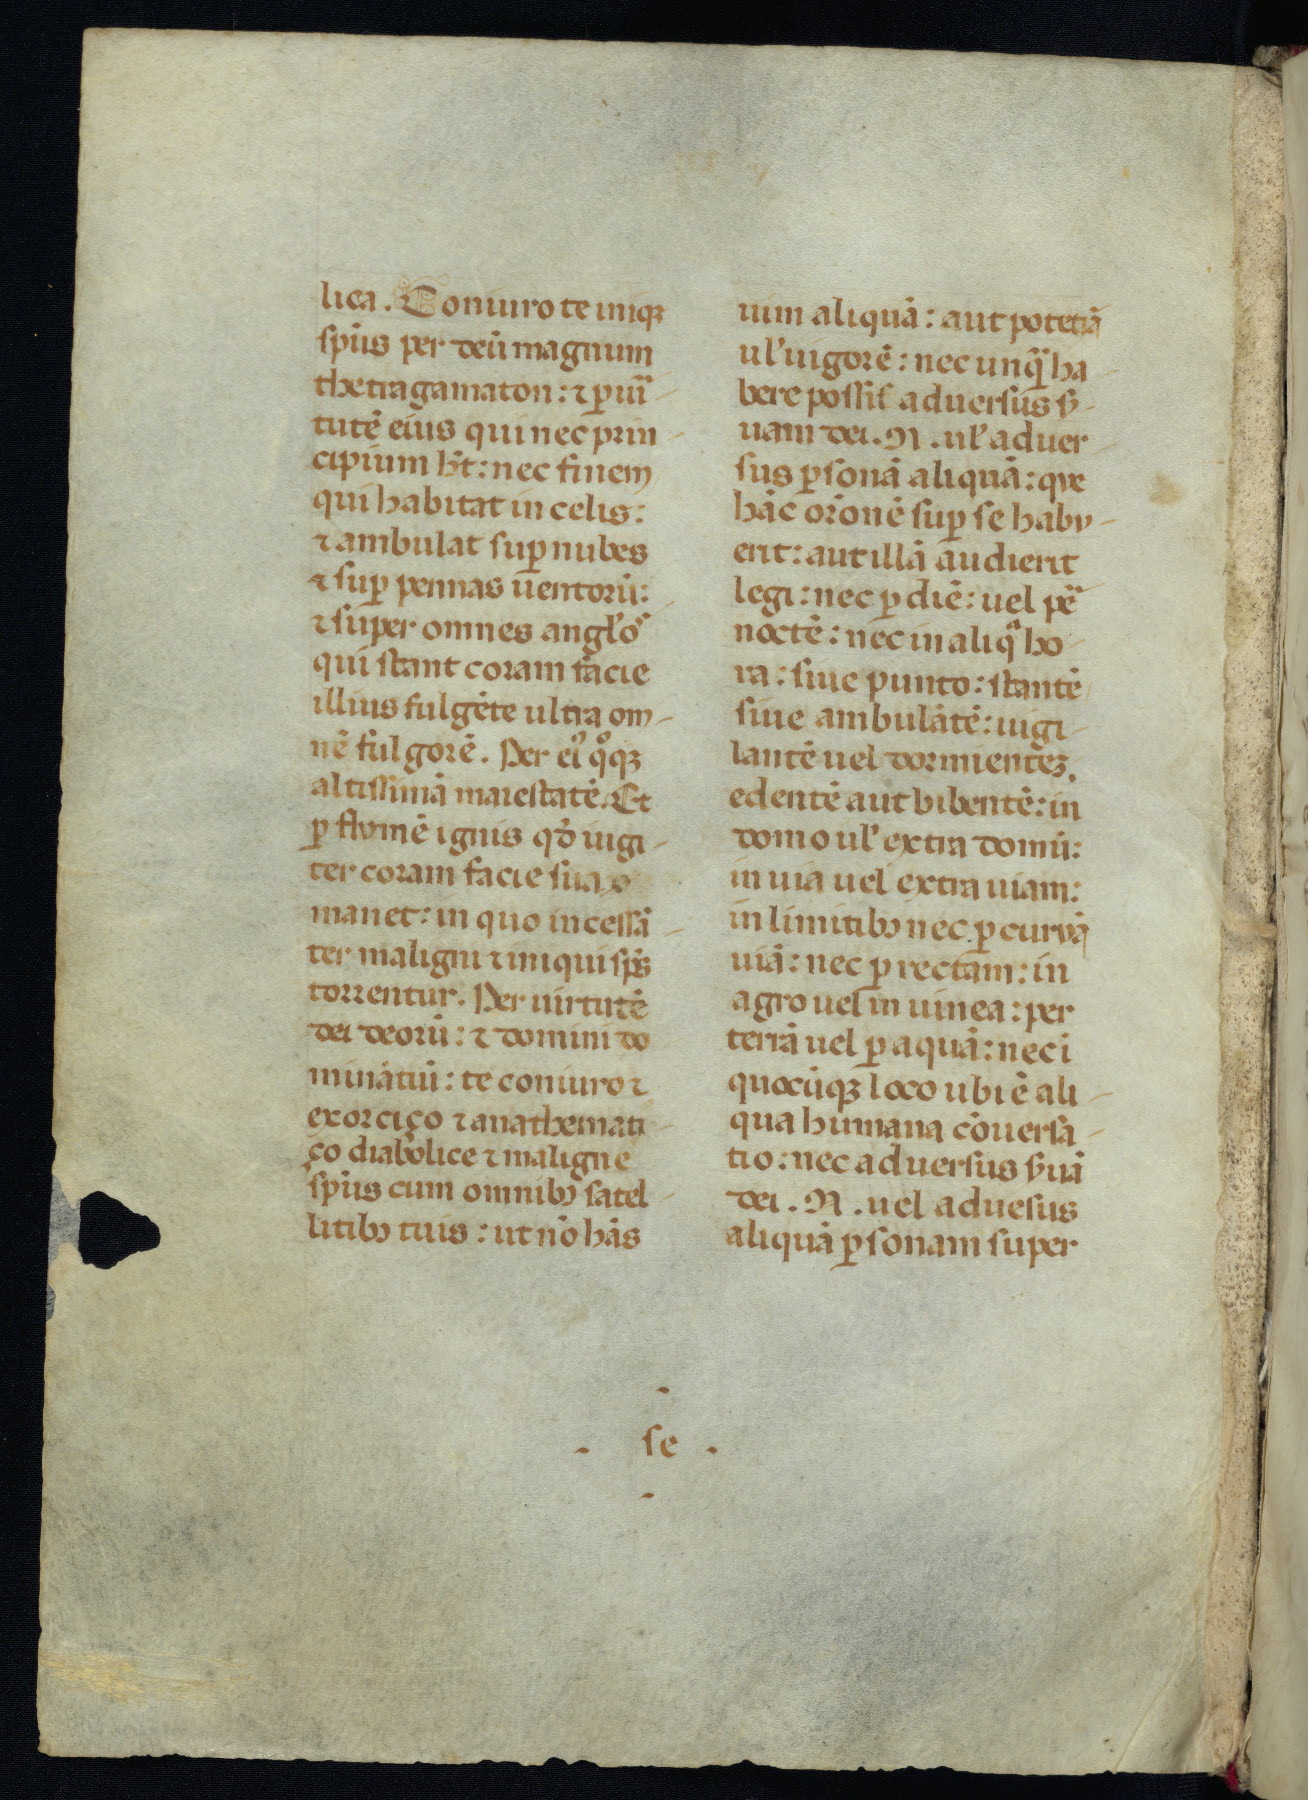 lica. Coniuro te iniqꝫ
sp̄us per deū magnum
thetragamaton: ⁊ ꝑ uir̄
tutē eius qui nec prin
cipium hr̄t: nec finem
qui habitat in celis:
⁊ ambulat suꝑ nubes
⁊ suꝑ pennas uentorū:
⁊ super omnes angl̓os
qui stant coram facie
illius fulgēte ultra om-
nē fulgorē. Per eiꝰ qͦqꝫ
altissimā maiestatē. Et
ꝑ flvmē ignis qd̄ iugi-
ter coram facie sua
manet: in quo incessā-
ter maligni ⁊ iniqui sp̄s
torrentur. Per uirtutē
dei deorū: ⁊ domini do
minātiū: te coniuro ⁊
exorciço ⁊ anathemati-
ço diabolice ⁊ maligne
sp̄us cum omnibꝫ satel-
litibꝫ tuis: ut nō hās
uim aliquā: aut potētiā
ul̓ uigorē: nec unqᷓ ha-
bere possis aduersus s̄-
uam dei. N. ul̓ aduer-
sus ꝑsonā aliquā: qve
hāc orōnē suꝑ se habv-
erit: aut illā audierit
legi: nec ꝑ diē: uel ꝑ
noctē: nec in aliqᷓ ho-
ra: siue punto: stantē
siue ambulātē: uigi-
lantē uel dormientēꝫ.
edentē aut bibentē: in
domo ul̓ extra domū:
in uia uel extra uiam:
in limitibꝫ nec ꝑ curvā
uiā: nec ꝑ rectam: in
agro uel in uinea: per
terrā uel ꝑ aquā: nec ī
quocūqꝫ loco ubi ē ali-
qua humana cōuersa-
tio: nec aduersus s̄uā
dei. N. uel aduesus
aliquā ꝑsonam super
se